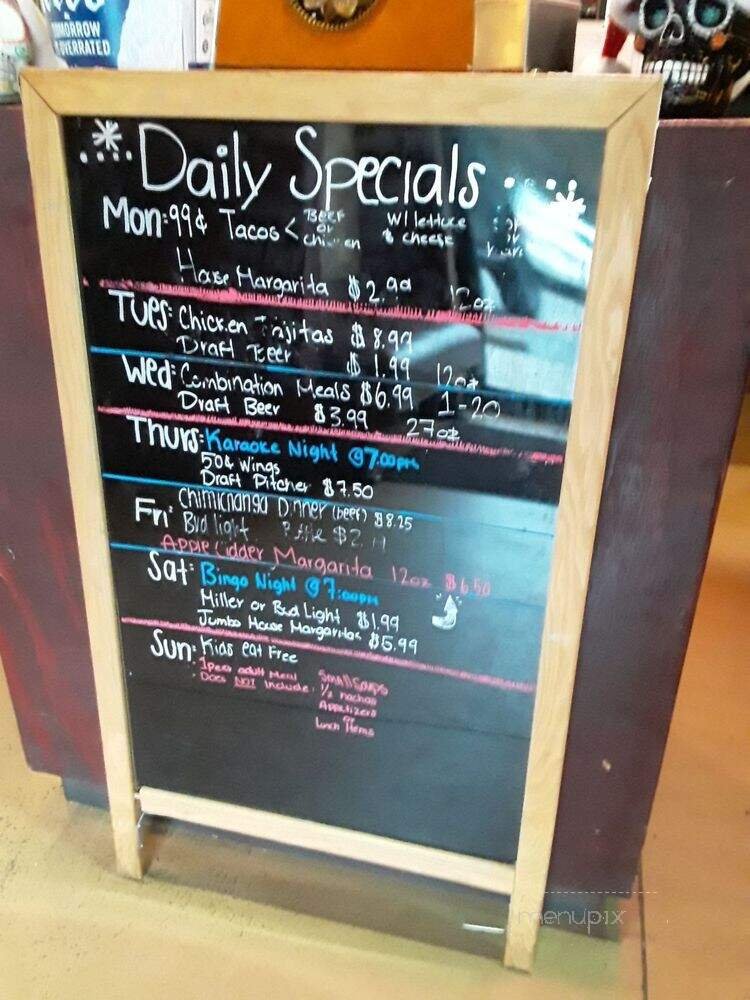 TOMORROW
OVERRATED
Daily Specials
Mon: 99¢ Tacos < Beef or chicken W/ lettuce & cheese
House Margarita $2.99 12oz
Tues: Chicken Fajitas $8.99
Draft Beer $1.99 12oz
Wed: Combination Meals $6.99 1-20
Draft Beer $3.99 27oz
Thurs: Karaoke Night @7:00pm
50¢ Wings
Draft Pitcher $7.50
Fri: Chimichanga Dinner (beef) $8.25
Bud light Bottle $2.
Apple Cidder Margarita 12oz $6.50
Sat: Bingo Night @7:00pm
Miller or Bud Light $1.99
Jumbo House Margaritas $5.99
Sun: Kids eat Free
1 per adult Meal
Does NOT include: Small Soups
1/2 nachos
Appetizers
or
Lunch Items
menupix